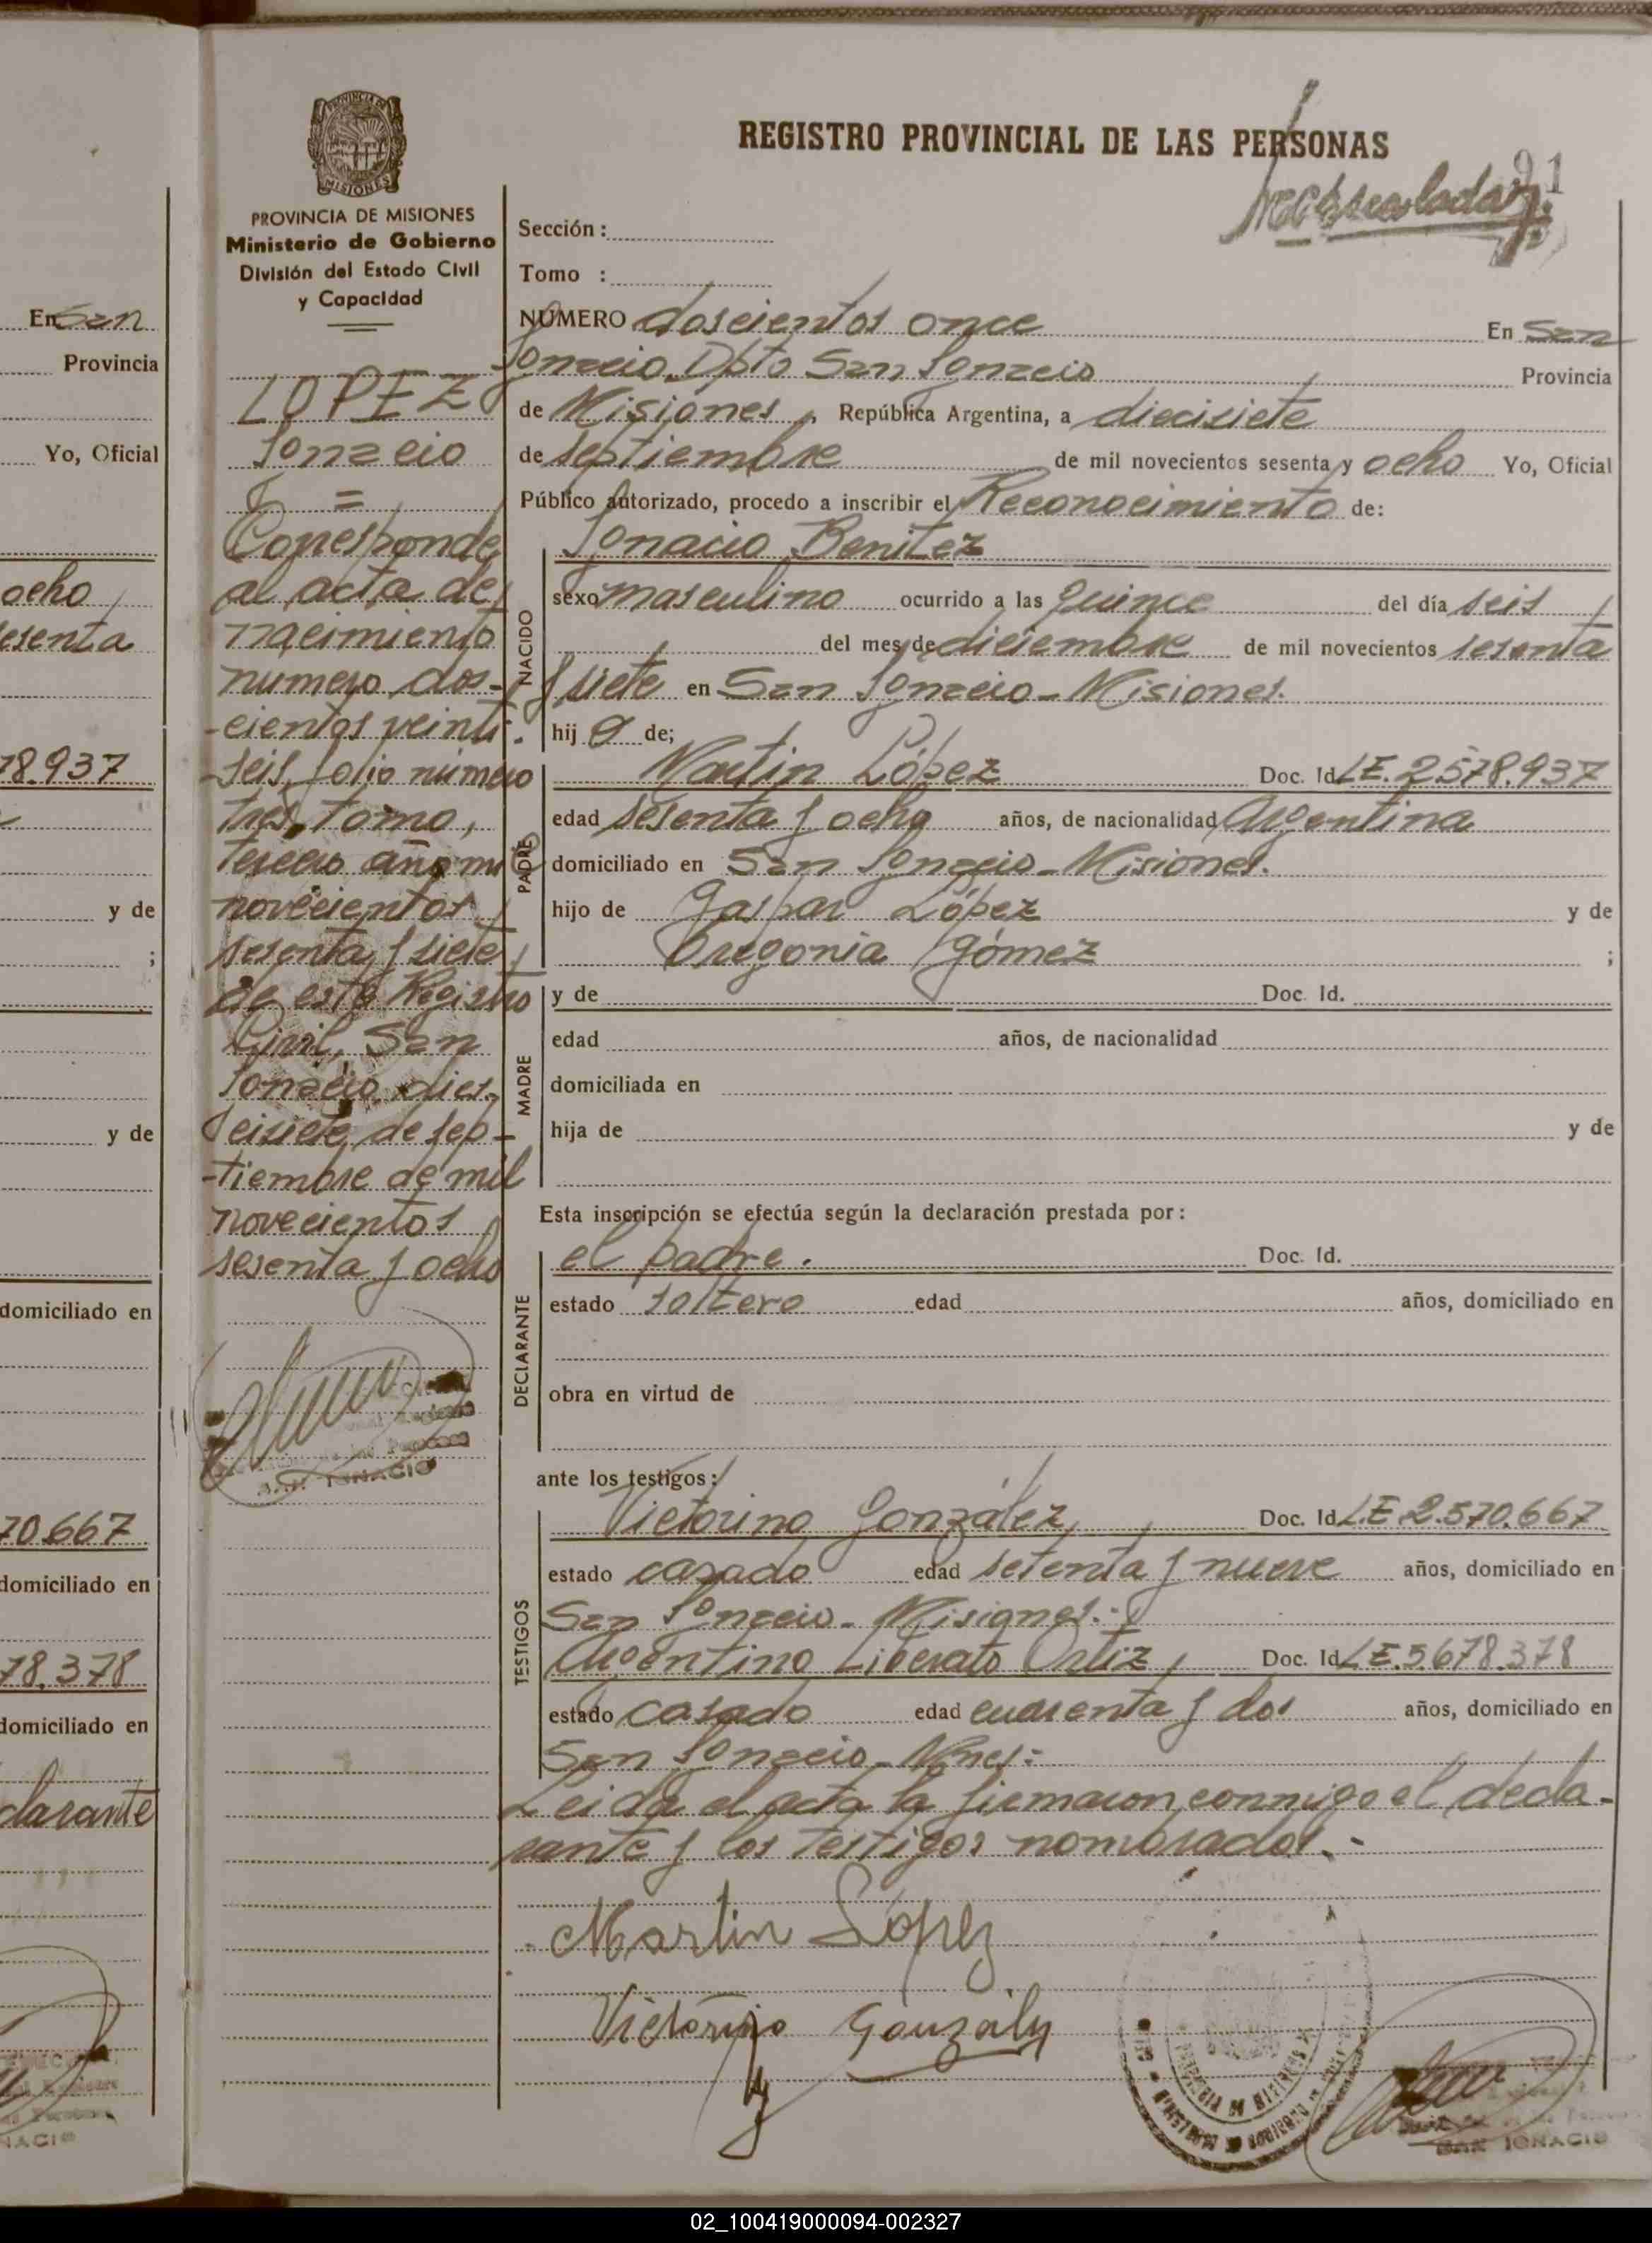 En San
Provincia
Yo, Oficial
ocho
esenta
78.937
y de
;
y de
domiciliado en
70.667
domiciliado en
78.378
domiciliado en
clarante
PROVINCIA DE MISIONES
Ministerio de Gobierno
División del Estado Civil
y Capacidad
LOPEZ
Ignacio
=
Corresponde
al acta de
nacimiento
numero dos-
-cientos veinti
seis, folio número
tres, tomo,
tercero año mil
novecientos
sesenta y siete
de este Registro
Civil, San
Ignacio, dies-
seisiete de sep-
-tiembre de mil
novecientos
sesenta y ocho
SAN IGNACIO
REGISTRO PROVINCIAL DE LAS PERSONAS
91
Sección :
Tomo :
NÚMERO doscientos once En San
Ignacio, Dpto San Ignacio Provincia
de Misiones, República Argentina, a diecisiete
de septiembre de mil novecientos sesenta y ocho Yo, Oficial
Público autorizado, procedo a inscribir el Reconocimiento de:
Ignacio Benitez
NACIDO
sexo masculino ocurrido a las quince del día seis
del mes de diciembre de mil novecientos sesenta
y siete en San Ignacio - Misiones.
hij o de;
PADRE
Martin López Doc. Id. LE. 2.578.937
edad sesenta y ocho años, de nacionalidad Argentina
domiciliado en San Ignacio - Misiones.
hijo de Gaspar López y de
Gregonia Gómez ;
MADRE
y de Doc. Id.
edad años, de nacionalidad
domiciliada en
hija de y de
Esta inscripción se efectúa según la declaración prestada por:
DECLARANTE
el padre. Doc. Id.
estado soltero edad años, domiciliado en
obra en virtud de
ante los testigos:
TESTIGOS
Victorino González, Doc. Id. L.E 2.570.667
estado casado edad setenta y nueve años, domiciliado en
San Ignacio - Misiones.-
Argentino Liberato Ortiz, Doc. Id. LE. 5.678.378
estado casado edad cuarenta y dos años, domiciliado en
San Ignacio - Mnes:-
Leida el acta la firmaron conmigo el decla-
rante y los testigos nombrados.-
Martin López
Victorino Gonzaly
SAN IGNACIO
02_100419000094-002327